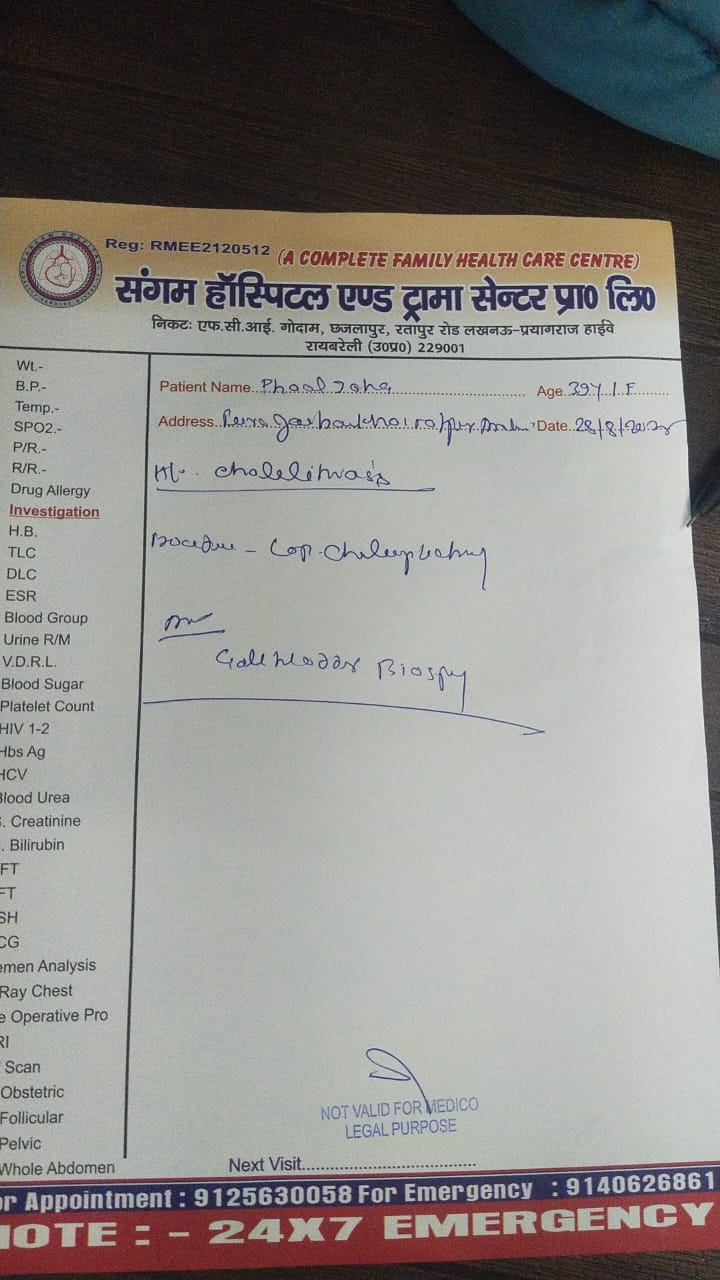 Reg: RMEE2120512 (A COMPLETE FAMILY HEALTH CARE CENTRE)
संगम हॉस्पिटल एण्ड ट्रामा सेन्टर प्रा० लि०
निकटः एफ.सी.आई. गोदाम, छजलापुर, रतापुर रोड लखनऊ-प्रयागराज हाईवे
रायबरेली (उ०प्र०) 229001
Wt.-
B.P.-
Temp.-
SPO2.-
P/R.-
R/R.-
Drug Allergy
Investigation
H.B.
TLC
DLC
ESR
Blood Group
Urine R/M
V.D.R.L.
Blood Sugar
Platelet Count
HIV 1-2
Hbs Ag
HCV
Blood Urea
. Creatinine
. Bilirubin
FT
FT
SH
CG
emen Analysis
Ray Chest
e Operative Pro
RI
Scan
Obstetric
Follicular
Pelvic
Whole Abdomen
Patient Name.. Phool .......... Age. 39Y / F
Address.. Date. 28/8/
Cholelithiasis
Procedure - Lap. 
Gall bladder Biospy
NOT VALID FOR MEDICO
LEGAL PURPOSE
Next Visit..........
or Appointment : 9125630058 For Emergency : 9140626861
NOTE : - 24X7 EMERGENCY